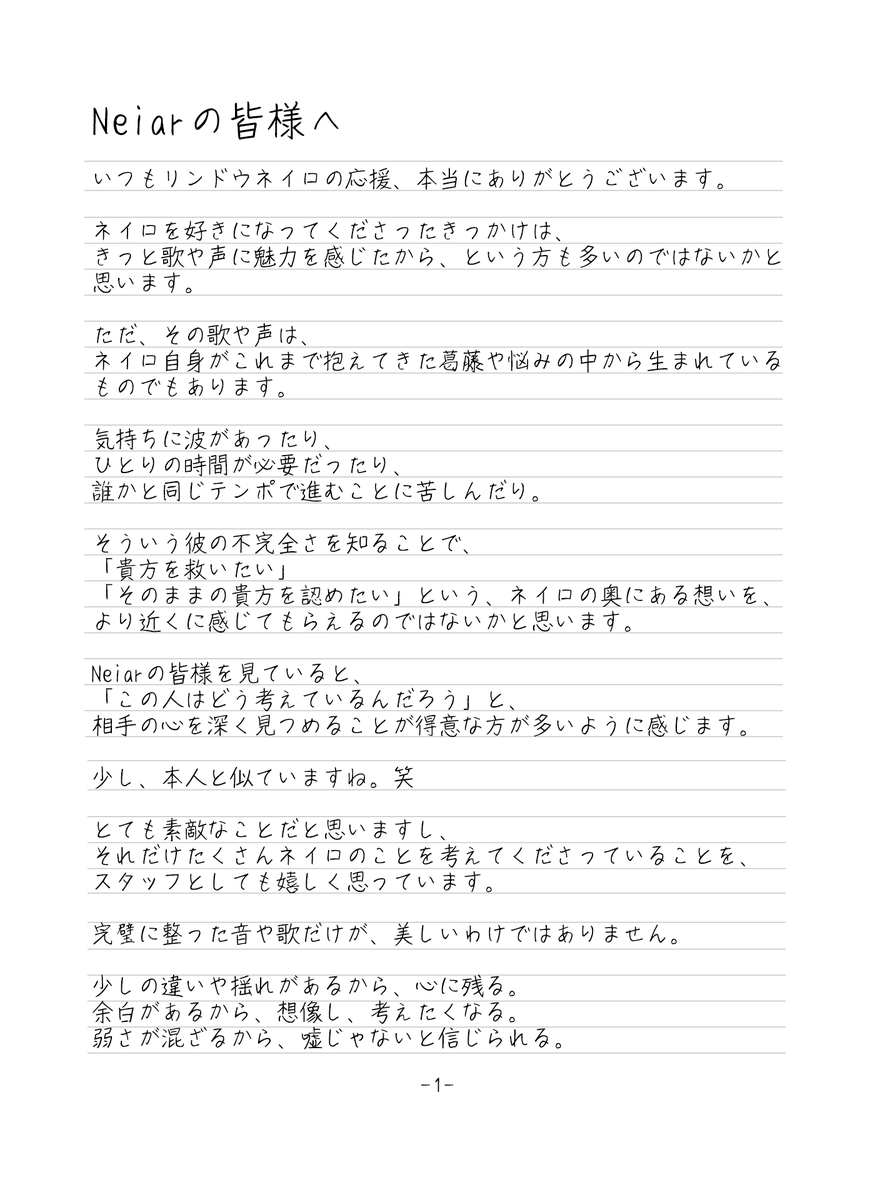 Neiarの皆様へ
いつもリンドウネイロの応援、本当にありがとうございます。
ネイロを好きになってくださったきっかけは、
きっと歌や声に魅力を感じたから、という方も多いのではないかと
思います。
ただ、その歌や声は、
ネイロ自身がこれまで抱えてきた葛藤や悩みの中から生まれている
ものでもあります。
気持ちに波があったり、
ひとりの時間が必要だったり、
誰かと同じテンポで進むことに苦しんだり。
そういう彼の不完全さを知ることで、
「貴方を救いたい」
「そのままの貴方を認めたい」という、ネイロの奥にある想いを、
より近くに感じてもらえるのではないかと思います。
Neiarの皆様を見ていると、
「この人はどう考えているんだろう」と、
相手の心を深く見つめることが得意な方が多いように感じます。
少し、本人と似ていますね。笑
とても素敵なことだと思いますし、
それだけたくさんネイロのことを考えてくださっていることを、
スタッフとしても嬉しく思っています。
完璧に整った音や歌だけが、美しいわけではありません。
少しの違いや揺れがあるから、心に残る。
余白があるから、想像し、考えたくなる。
弱さが混ざるから、嘘じゃないと信じられる。
-1-